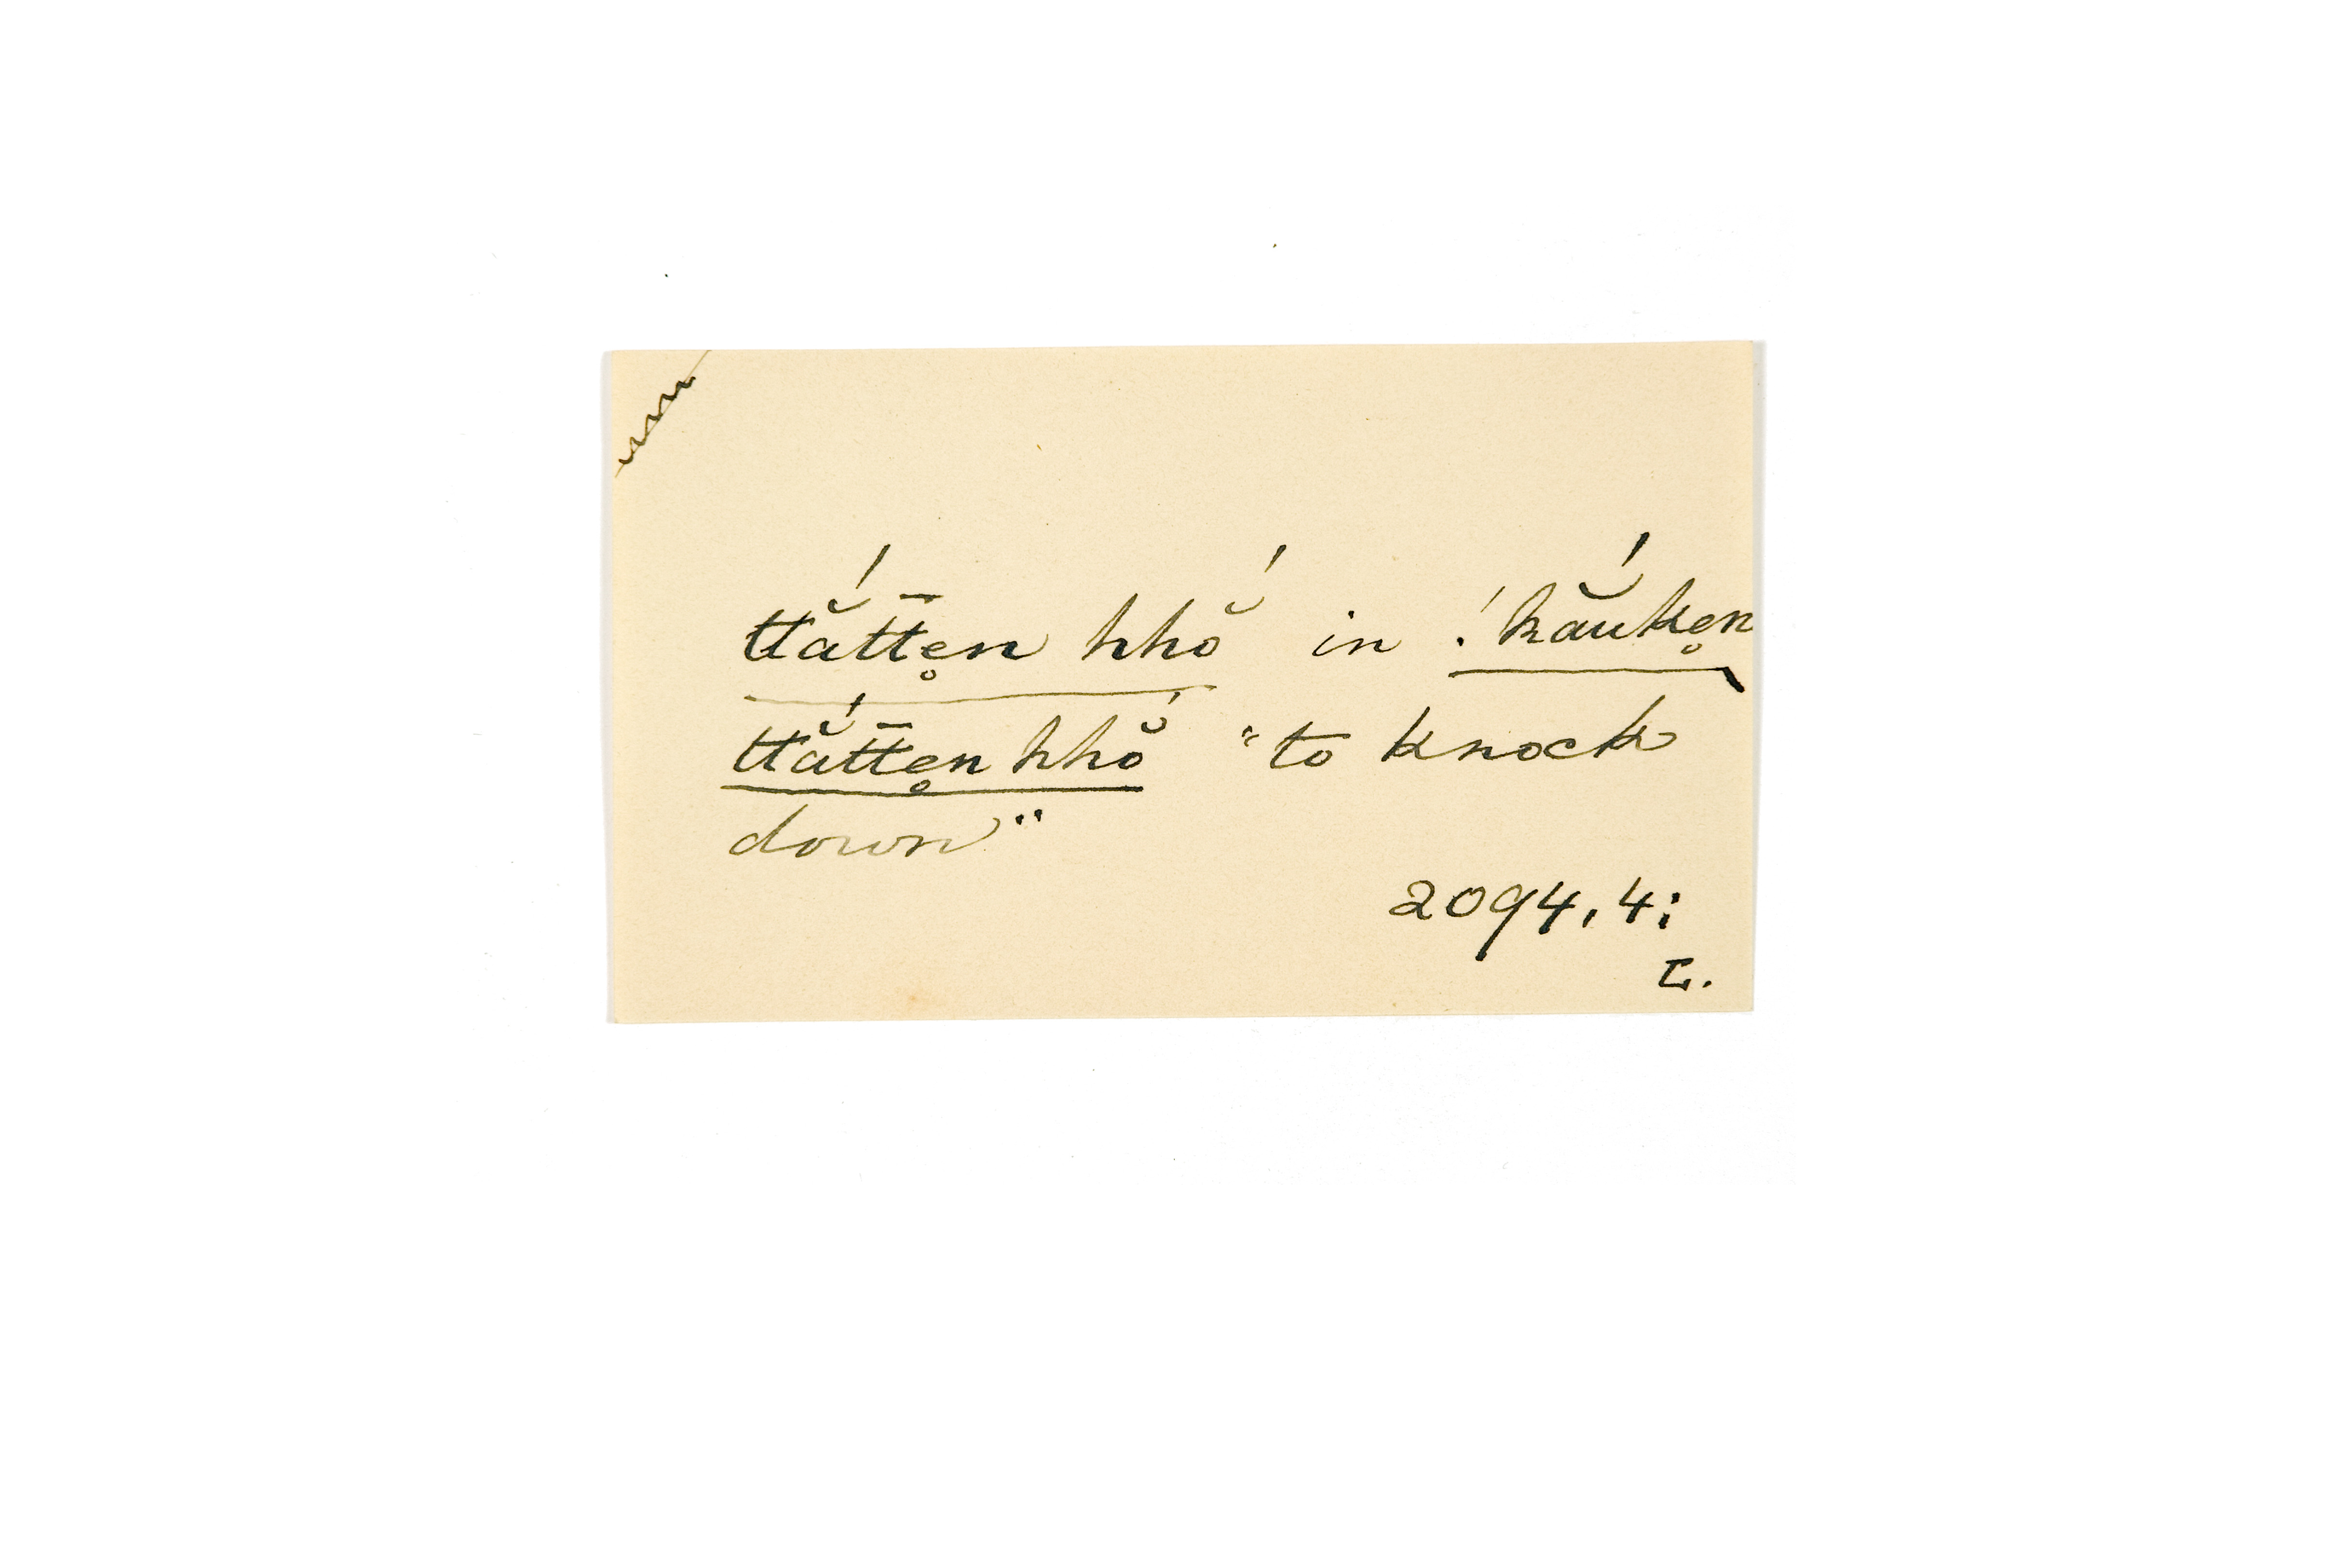 ttắttẹ̄n hhŏ́ in !kắukẹn
ttắttẹ̄n hhŏ́ "to knock
down"
2094, 4;
L.